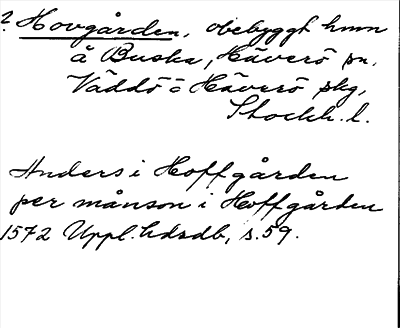 ? Hovgården, obebyggt hmn
å Buska, Häverö sn,
Väddö o Häverö skg,
Stockh. l.
Anders i Hoffgården
per månson i Hoffgården
1572 Uppl. hdsdb, s. 59.